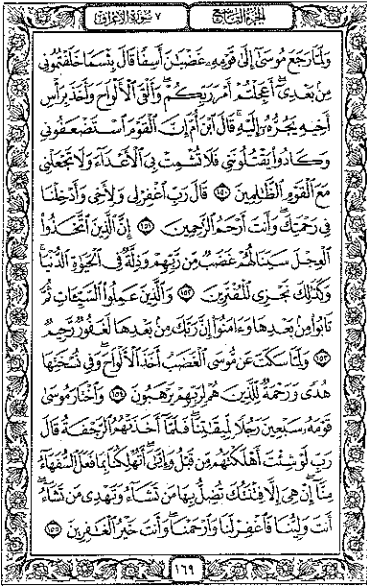 الجزء التاسع ٧ سورة الأعراف
وَلَمَّا رَجَعَ مُوسَىٰٓ إِلَىٰ قَوْمِهِۦ غَضْبَٰنَ أَسِفًا قَالَ بِئْسَمَا خَلَفْتُمُونِي
مِنۢ بَعْدِيٓۖ أَعَجِلْتُمْ أَمْرَ رَبِّكُمْۖ وَأَلْقَى ٱلْأَلْوَاحَ وَأَخَذَ بِرَأْسِ
أَخِيهِ يَجُرُّهُۥٓ إِلَيْهِۚ قَالَ ٱبْنَ أُمَّ إِنَّ ٱلْقَوْمَ ٱسْتَضْعَفُونِي
وَكَادُوا۟ يَقْتُلُونَنِي فَلَا تُشْمِتْ بِيَ ٱلْأَعْدَآءَ وَلَا تَجْعَلْنِي
مَعَ ٱلْقَوْمِ ٱلظَّٰلِمِينَ ١٥٠ قَالَ رَبِّ ٱغْفِرْ لِي وَلِأَخِي وَأَدْخِلْنَا
فِي رَحْمَتِكَۖ وَأَنتَ أَرْحَمُ ٱلرَّٰحِمِينَ ١٥١ إِنَّ ٱلَّذِينَ ٱتَّخَذُوا۟
ٱلْعِجْلَ سَيَنَالُهُمْ غَضَبٌ مِّن رَّبِّهِمْ وَذِلَّةٌ فِي ٱلْحَيَوٰةِ ٱلدُّنْيَاۚ
وَكَذَٰلِكَ نَجْزِي ٱلْمُفْتَرِينَ ١٥٢ وَٱلَّذِينَ عَمِلُوا۟ ٱلسَّيِّـَٔاتِ ثُمَّ
تَابُوا۟ مِنۢ بَعْدِهَا وَءَامَنُوٓا۟ إِنَّ رَبَّكَ مِنۢ بَعْدِهَا لَغَفُورٌ رَّحِيمٌ
١٥٣ وَلَمَّا سَكَتَ عَن مُّوسَى ٱلْغَضَبُ أَخَذَ ٱلْأَلْوَاحَۖ وَفِي نُسْخَتِهَا
هُدًى وَرَحْمَةٌ لِّلَّذِينَ هُمْ لِرَبِّهِمْ يَرْهَبُونَ ١٥٤ وَٱخْتَارَ مُوسَىٰ
قَوْمَهُۥ سَبْعِينَ رَجُلًا لِّمِيقَٰتِنَاۖ فَلَمَّآ أَخَذَتْهُمُ ٱلرَّجْفَةُ قَالَ
رَبِّ لَوْ شِئْتَ أَهْلَكْتَهُم مِّن قَبْلُ وَإِيَّٰيَۖ أَتُهْلِكُنَا بِمَا فَعَلَ ٱلسُّفَهَآءُ
مِنَّآۖ إِنْ هِيَ إِلَّا فِتْنَتُكَ تُضِلُّ بِهَا مَن تَشَآءُ وَتَهْدِي مَن تَشَآءُۖ
أَنتَ وَلِيُّنَا فَٱغْفِرْ لَنَا وَٱرْحَمْنَاۖ وَأَنتَ خَيْرُ ٱلْغَٰفِرِينَ ١٥٥
١٦٩